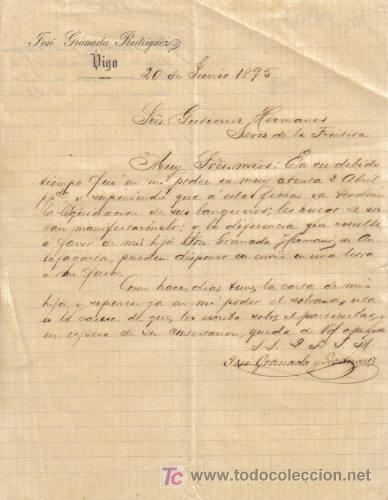 José Granada Rodriguez
Vigo
20 de Junio 1895
Sres Gutierrez Hermanos
Jeres de la Frontera
Muy Sres. mios: En su debido
tiempo fué en mi poder su muy atenta 2 Abril
pp y suponiendo que á estas fechas ya tendran
la liquidacion de sus langueros; les ruego se sir
van manifestarmelo y la diferencia que resulte
á favor de mis hijos Sres. Granada Hermanos de An
tofagasta, pueden disponer su envio en una letra
a mi favor.
Como hace dias tuve la carta de mis
hijos, y suponen ya en mi poder el sobrante, esta
es la causa de que les escriba sobre el particular,
en espera de su contestacion, queda de Vds
S. S. Q. B. S. M.
José Granada y Rodriguez
TC www.todocoleccion.net